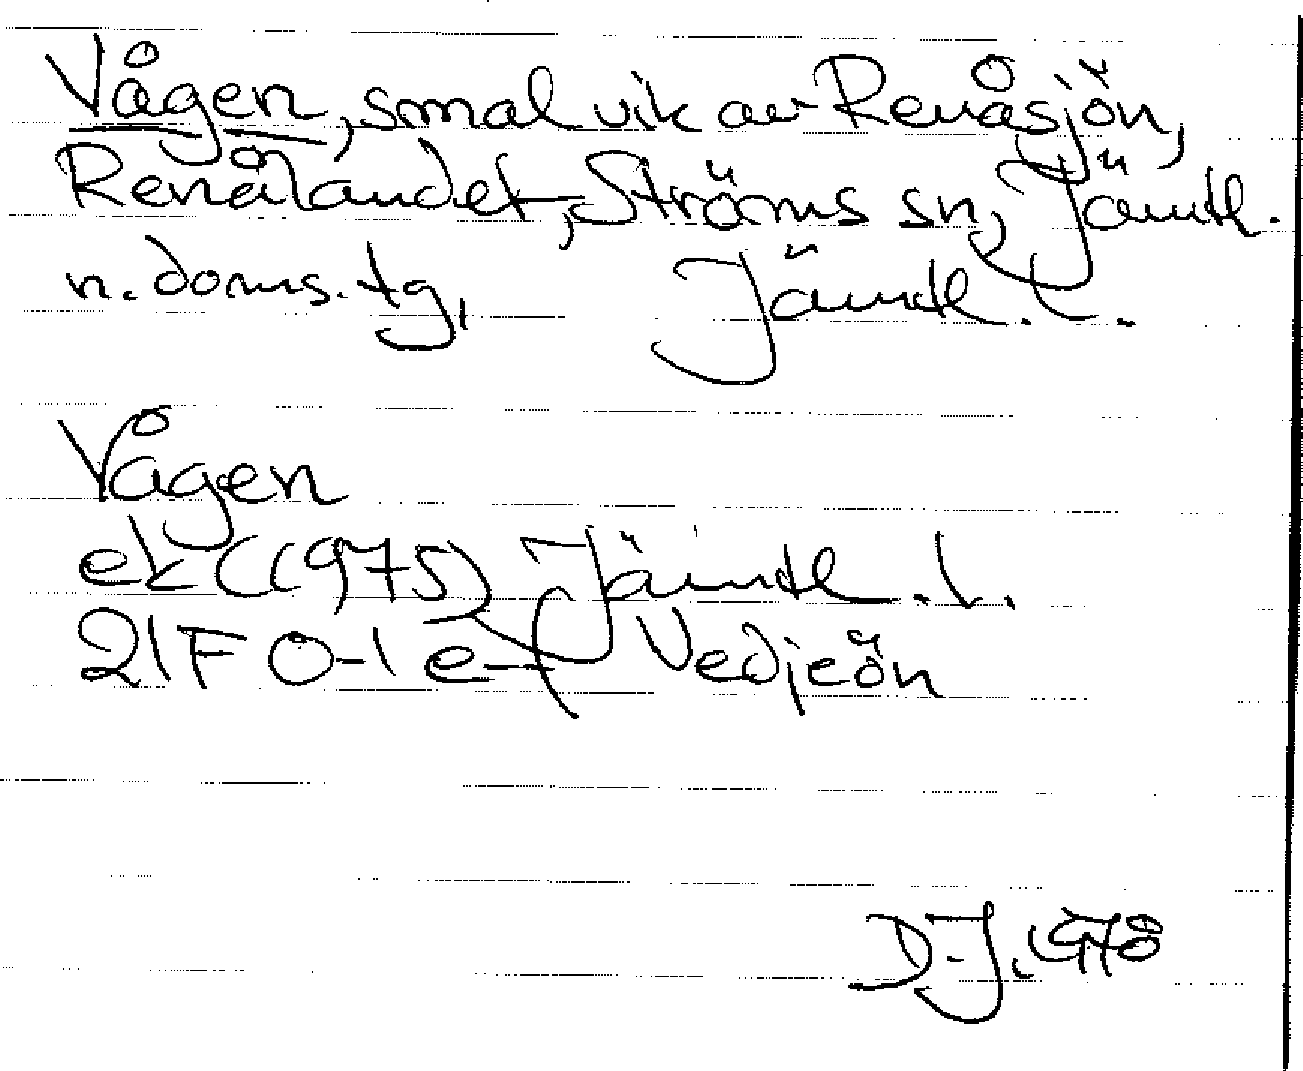 Vågen, smal vik av Renåsjön,
Renålandet, Ströms sn, Jämtl.
n. doms. tg, Jämtl. l.
Vågen
ek (1975) Jämtl. l.
21F 0-1 e-f Vedjeön
D-J. 1978